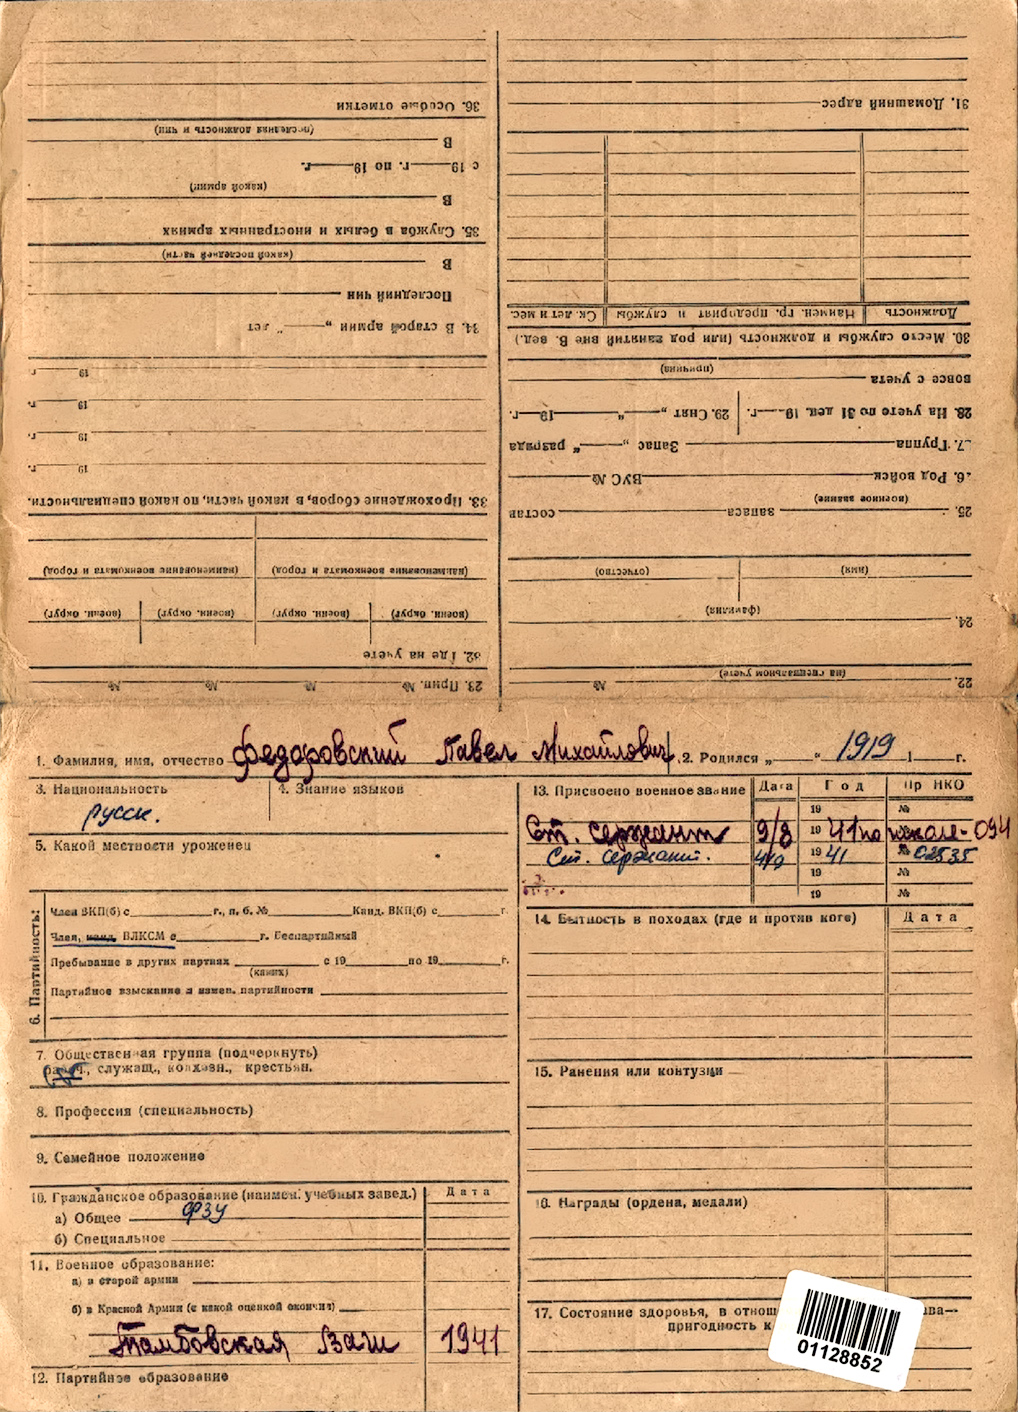 36. Особые отметки
(последняя должность и чин)
В
с 19 г. по 19 г.
(какой армии)
В
35. Служба в белых и иностранных армиях
(какой последней части)
В
Последний чин
34. В старой армии „ “ лет
19 г.
19 г.
19 г.
19 г.
33. Прохождение сборов, в какой части, по какой специальности.
(наименование военкомата и город) (наименование военкомата и город)
(воен. округ) (воен. округ) (воен. округ) (воен. округ)
32. Где на учете
23. Прип. № № № №
31. Домашний адрес
Должность Наимен. гр. предприят и службы Ск. лет и мес.
30. Место службы и должность (или род занятий вне В. вед.)
(причина)
вовсе с учета
28. На учете по 31 дек. 19 г. 29. Снят „ “ 19 г.
7. Группа Запас „ “ разряда
6. Род войск ВУС №
(военное звание)
25. запаса состав
(имя) (отчество)
(фамилия)
24.
22. (на специальном учете) №
1. Фамилия, имя, отчество Федоровский Павел Михайлович 2. Родился „ “ 1919 г.
3. Национальность 4. Знание языков
русск.
5. Какой местности уроженец
6. Партийность:
Член ВКП(б) с г., п. б. № Канд. ВКП(б) с г.
Член, канд. ВЛКСМ с г. Беспартийный
Пребывание в других партиях с 19 по 19 г.
(каких)
Партийное взыскание и измен. партийности
7. Общественная группа (подчеркнуть)
рабоч., служащ., колхозн., крестьян.
8. Профессия (специальность)
9. Семейное положение
10. Гражданское образование (наимен. учебных завед.) Дата
а) Общее ФЗУ
б) Специальное
11. Военное образование:
а) в старой армии
б) в Красной Армии (с какой оценкой окончил)
Тамбовская Ваш 1941
12. Партийное образование
13. Присвоено военное звание Дата Год Пр НКО
19 №
Ст. сержант 9/8 19 41 по школе-094
Ст. сержант. 4/9 19 41 № 02535
19 №
19 №
14. Бытность в походах (где и против кого) Дата
15. Ранения или контузии
16. Награды (ордена, медали)
17. Состояние здоровья, в отнош
пригодность к
01128852